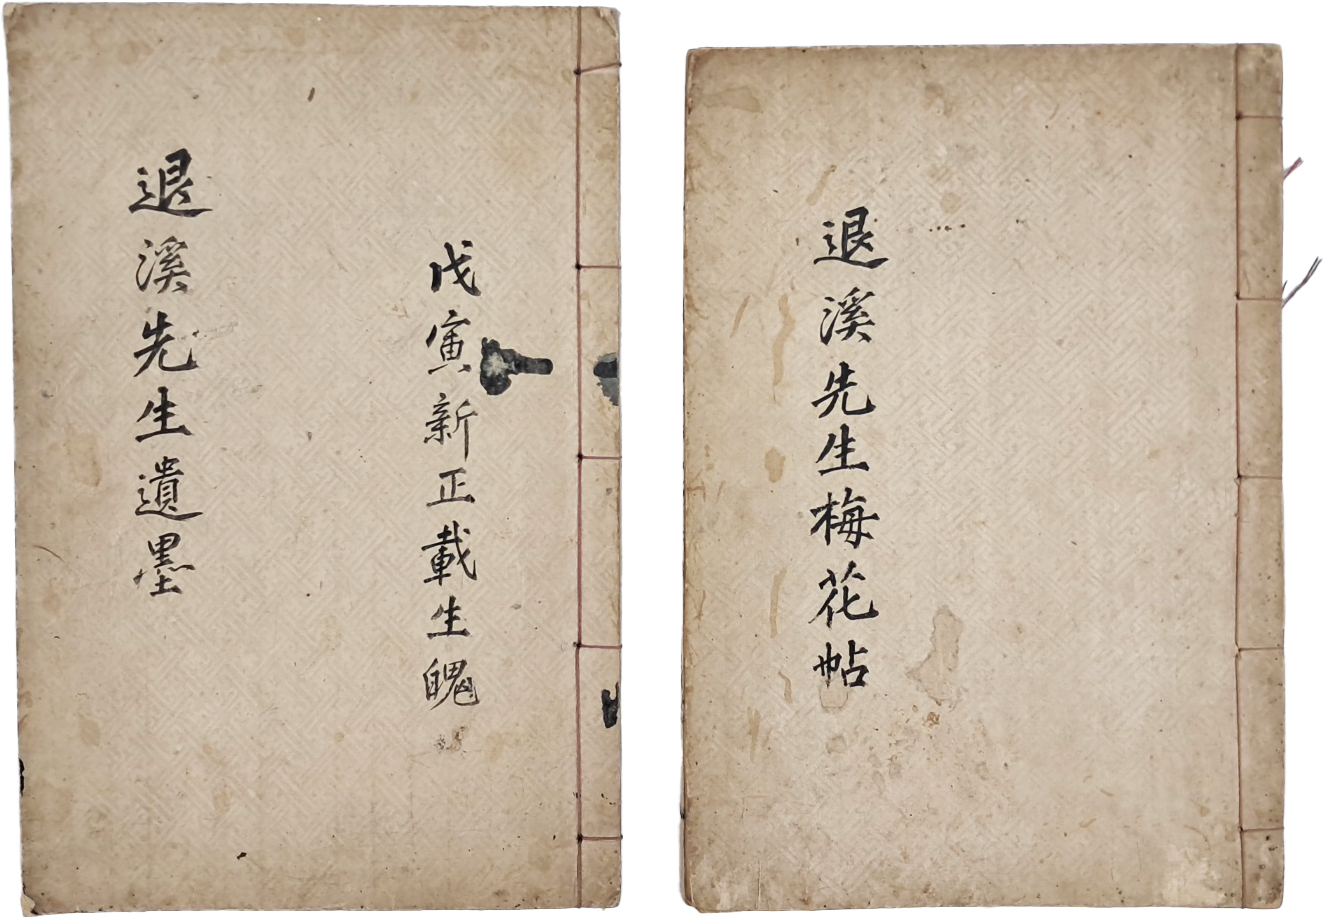 戊寅新正載生魄
退溪先生遺墨
退溪先生梅花帖